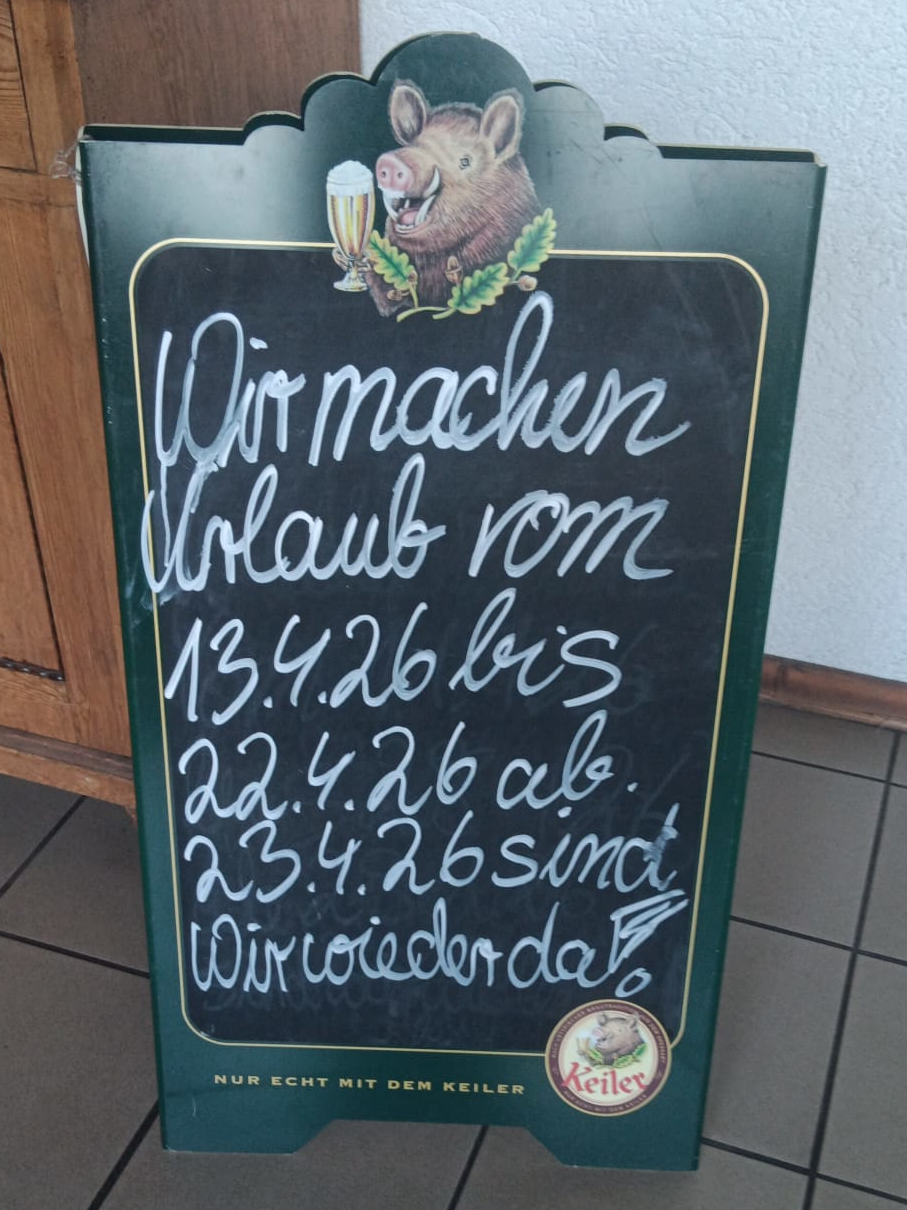 Wir machen
Urlaub vom
13.4.26 bis
22.4.26 ab.
23.4.26 sind
Wir wieder da!
NUR ECHT MIT DEM KEILER
Keiler